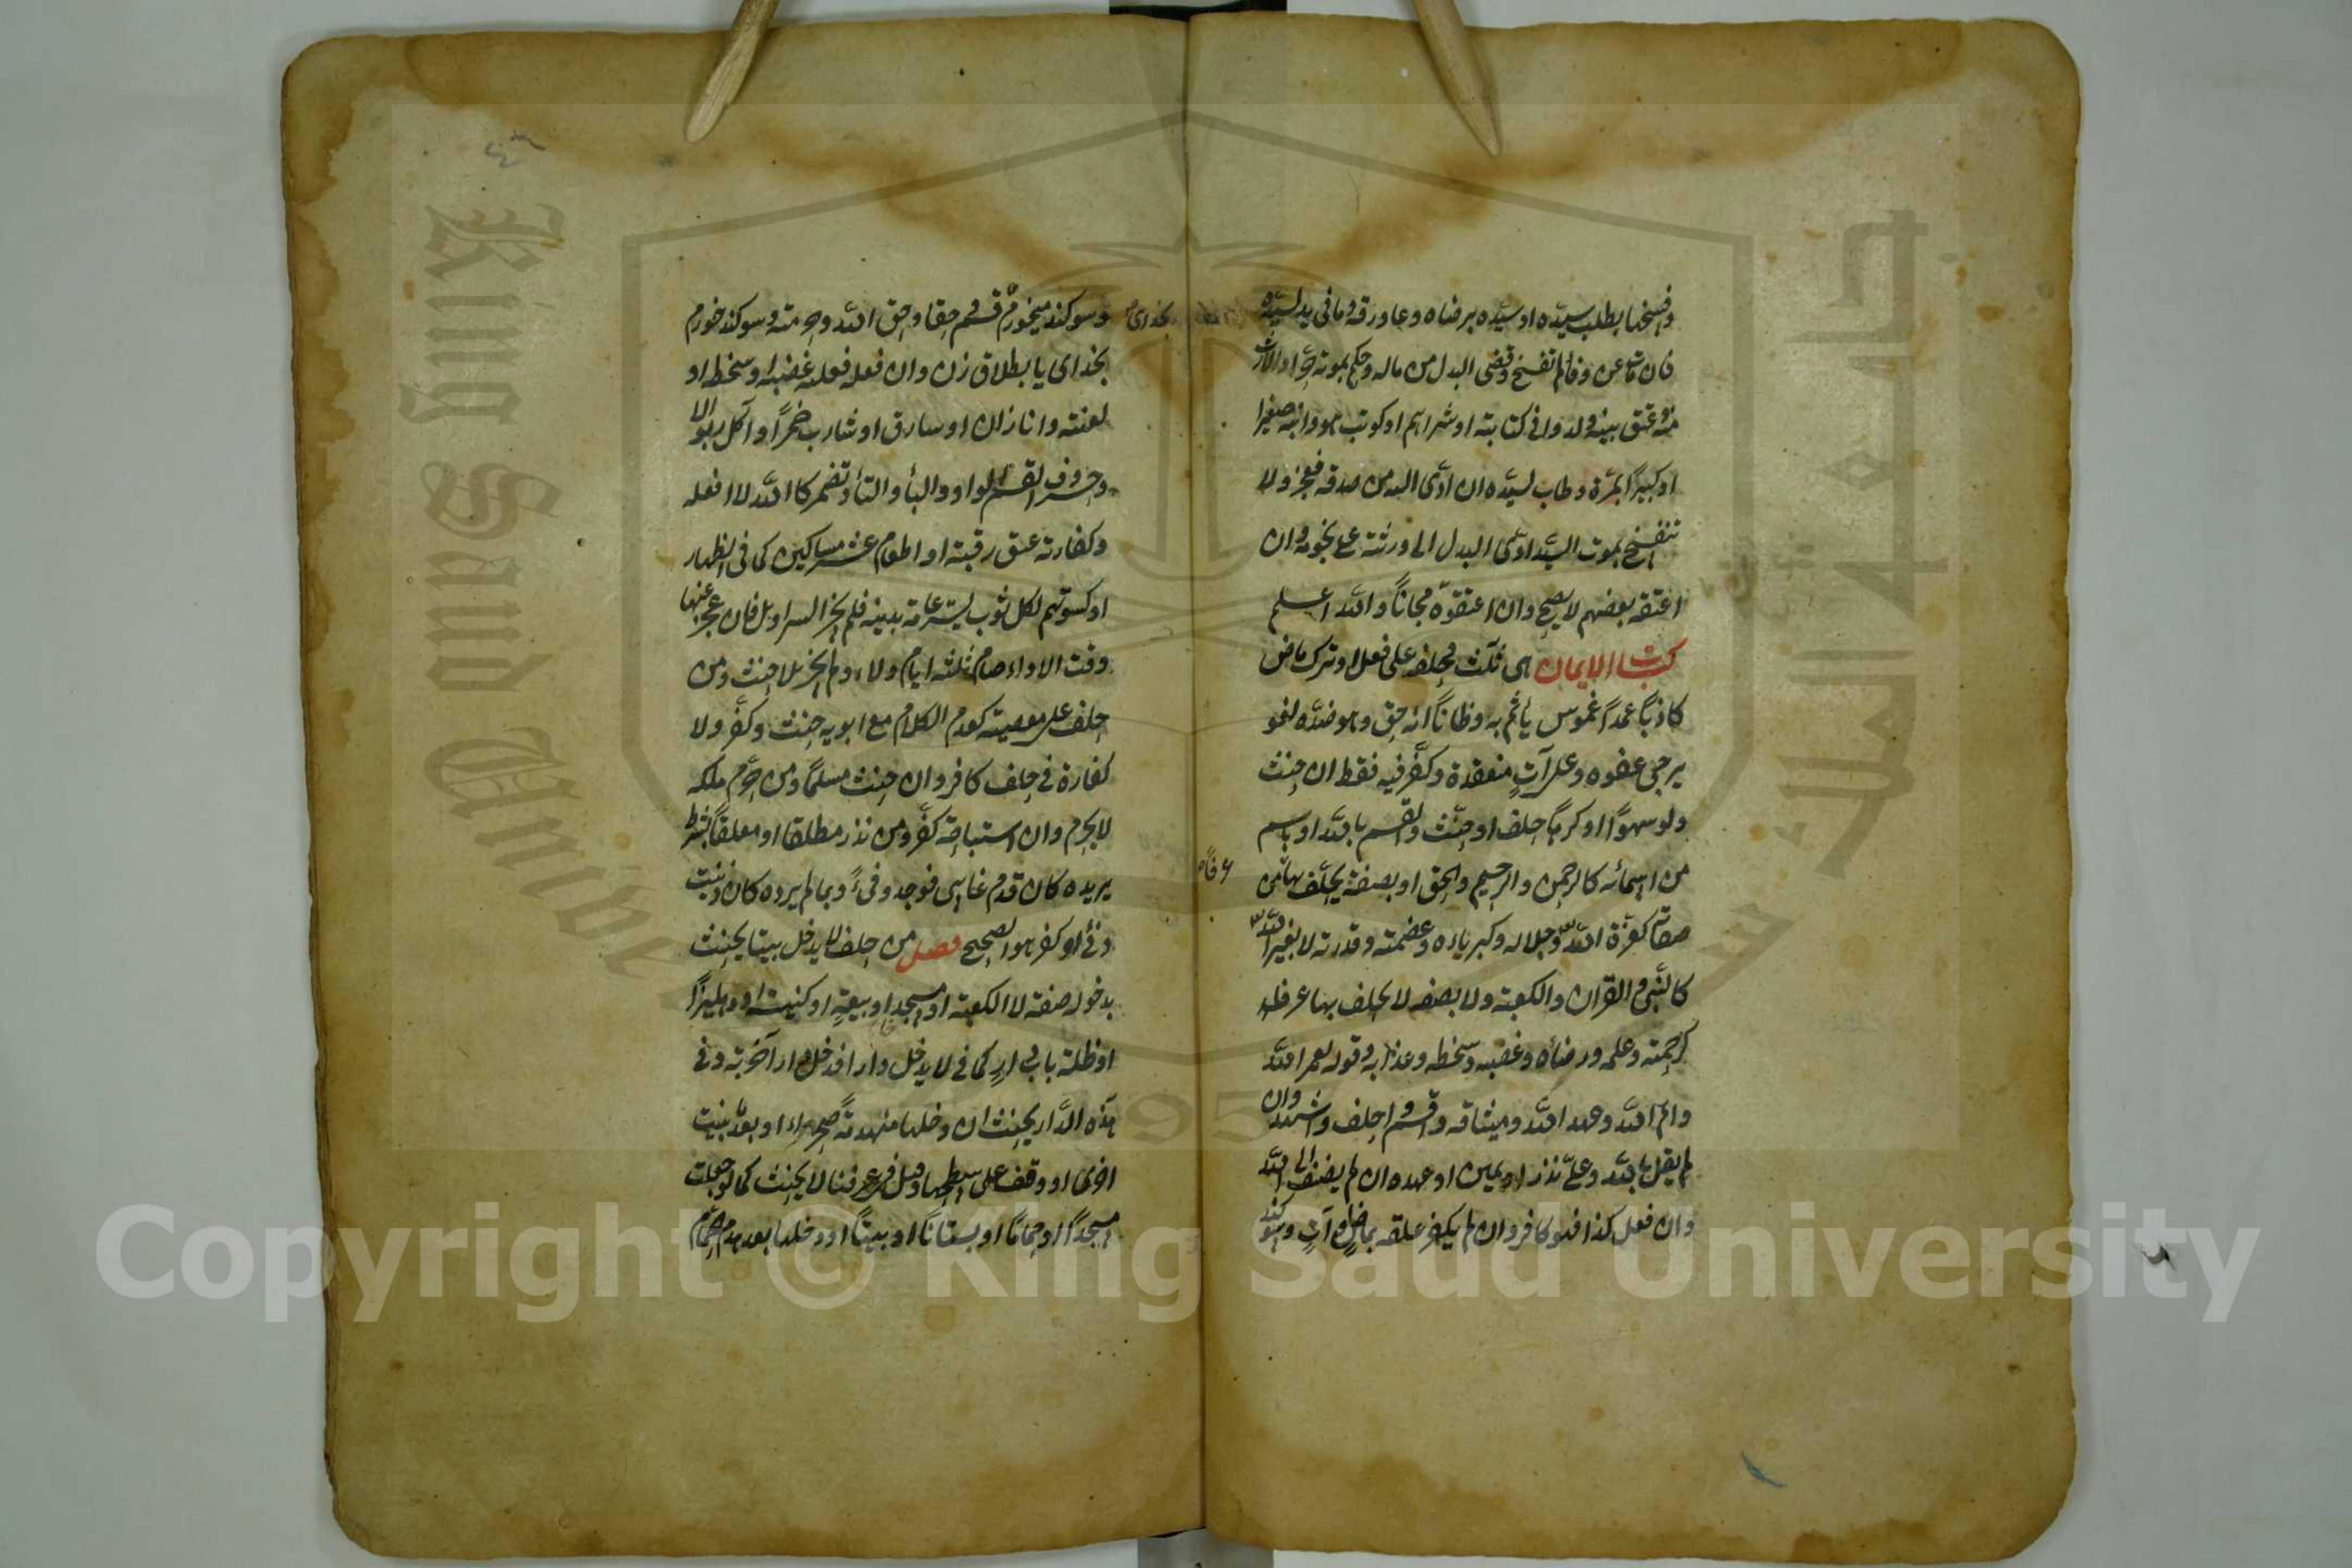 وفسخها بطلب سيده او سيده برضاه وعاد رقه وما في يده لسيده
فان مات عن وفاء لم تفسخ وقضى البدل من ماله وحكم بموته حرا والارث
منه وعتق بنيه ولدوا في كتابته او شراهم او كوتب هو وابنه صغيرا
او كبيرا بمرة وطاب لسيده ان ادى اليه من صدقة فعجز ولا
تنفسخ بموت السيد وادى البدل الى ورثته على نجومه وان
اعتقه بعضهم لا يصح وان اعتقوه مجانا والله اعلم
كتاب الايمان هى ثلث فحلفه على فعل او ترك ماض
كاذبا عمدا غموس يأثم به وظانا انه حق وهو ضده لغو
يرجى عفوه وعلى آت منعقدة وكفر فيه فقط ان حنث
ولو سهوا او كرها حلف او حنث والقسم بالله او باسم
من اسمائه كالرحمن والرحيم والحق او بصفة يحلف بها من
صفاته كعزة الله وجلاله وكبريائه وعظمته وقدرته لا بغير الله
عرفا
كالنبي والقرآن والكعبة ولا بصفة لا يحلف بها عرفا
كرحمته وعلمه ورضائه وغضبه وسخطه وعذابه وقوله لعمر الله
وايم الله وعهد الله وميثاقه واقسم واحلف واشهد وان
لم يقل بالله وعلي نذر او يمين او عهد وان لم يضف الى الله
وان فعل كذا فهو كافر وان لم يكفر علقه بماض او آت وسوكند
٤٦
بخداى
وسوكند ميخورم قسم حقا وحق الله وحرمته وسوكند خورم
بخداى يا بطلاق زن وان فعله فعليه غضبه او سخطه او
لعنته وانا زان او سارق او شارب خمر او آكل ربوا لا
وحروف القسم الواو والباء والتاء وتضمر كالله لا افعله
وكفارته عتق رقبة او اطعام عشر مساكين كما في الظهار
او كسوتهم لكل ثوب يستر عامة بدنه فلم يجز السراويل فان عجز عنها
وقت الاداء صام ثلثة ايام ولاء ولم يجز بلا حنث ومن
حلف على معصية كعدم الكلام مع ابويه حنث وكفر ولا
كفارة في حلف كافر وان حنث مسلما ومن حرم ملكه
لا يحرم وان استباحه كفر ومن نذر مطلقا او معلقا بشرط
يريده كان قدم غائبي فوجد وفى وبما لم يرده كان زنيت
وفى او كفر هو الصحيح فصل من حلف لا يدخل بيتا يحنث
بدخول صفة لا الكعبة او مسجد او بيعة او كنيسة او دهليز
او ظلة باب دار كما في لا يدخل دارا فدخل دارا خربة وفي
هذه الدار يحنث ان دخلها منهدمة صحراء او بعد ما بنيت
اخرى او وقف على سطحها وقيل في عرفنا لا يحنث كما لو جعلت
مسجدا او حماما او بستانا او بيتا او دخلها بعد هدم الحمام
Copyright © King Saud University